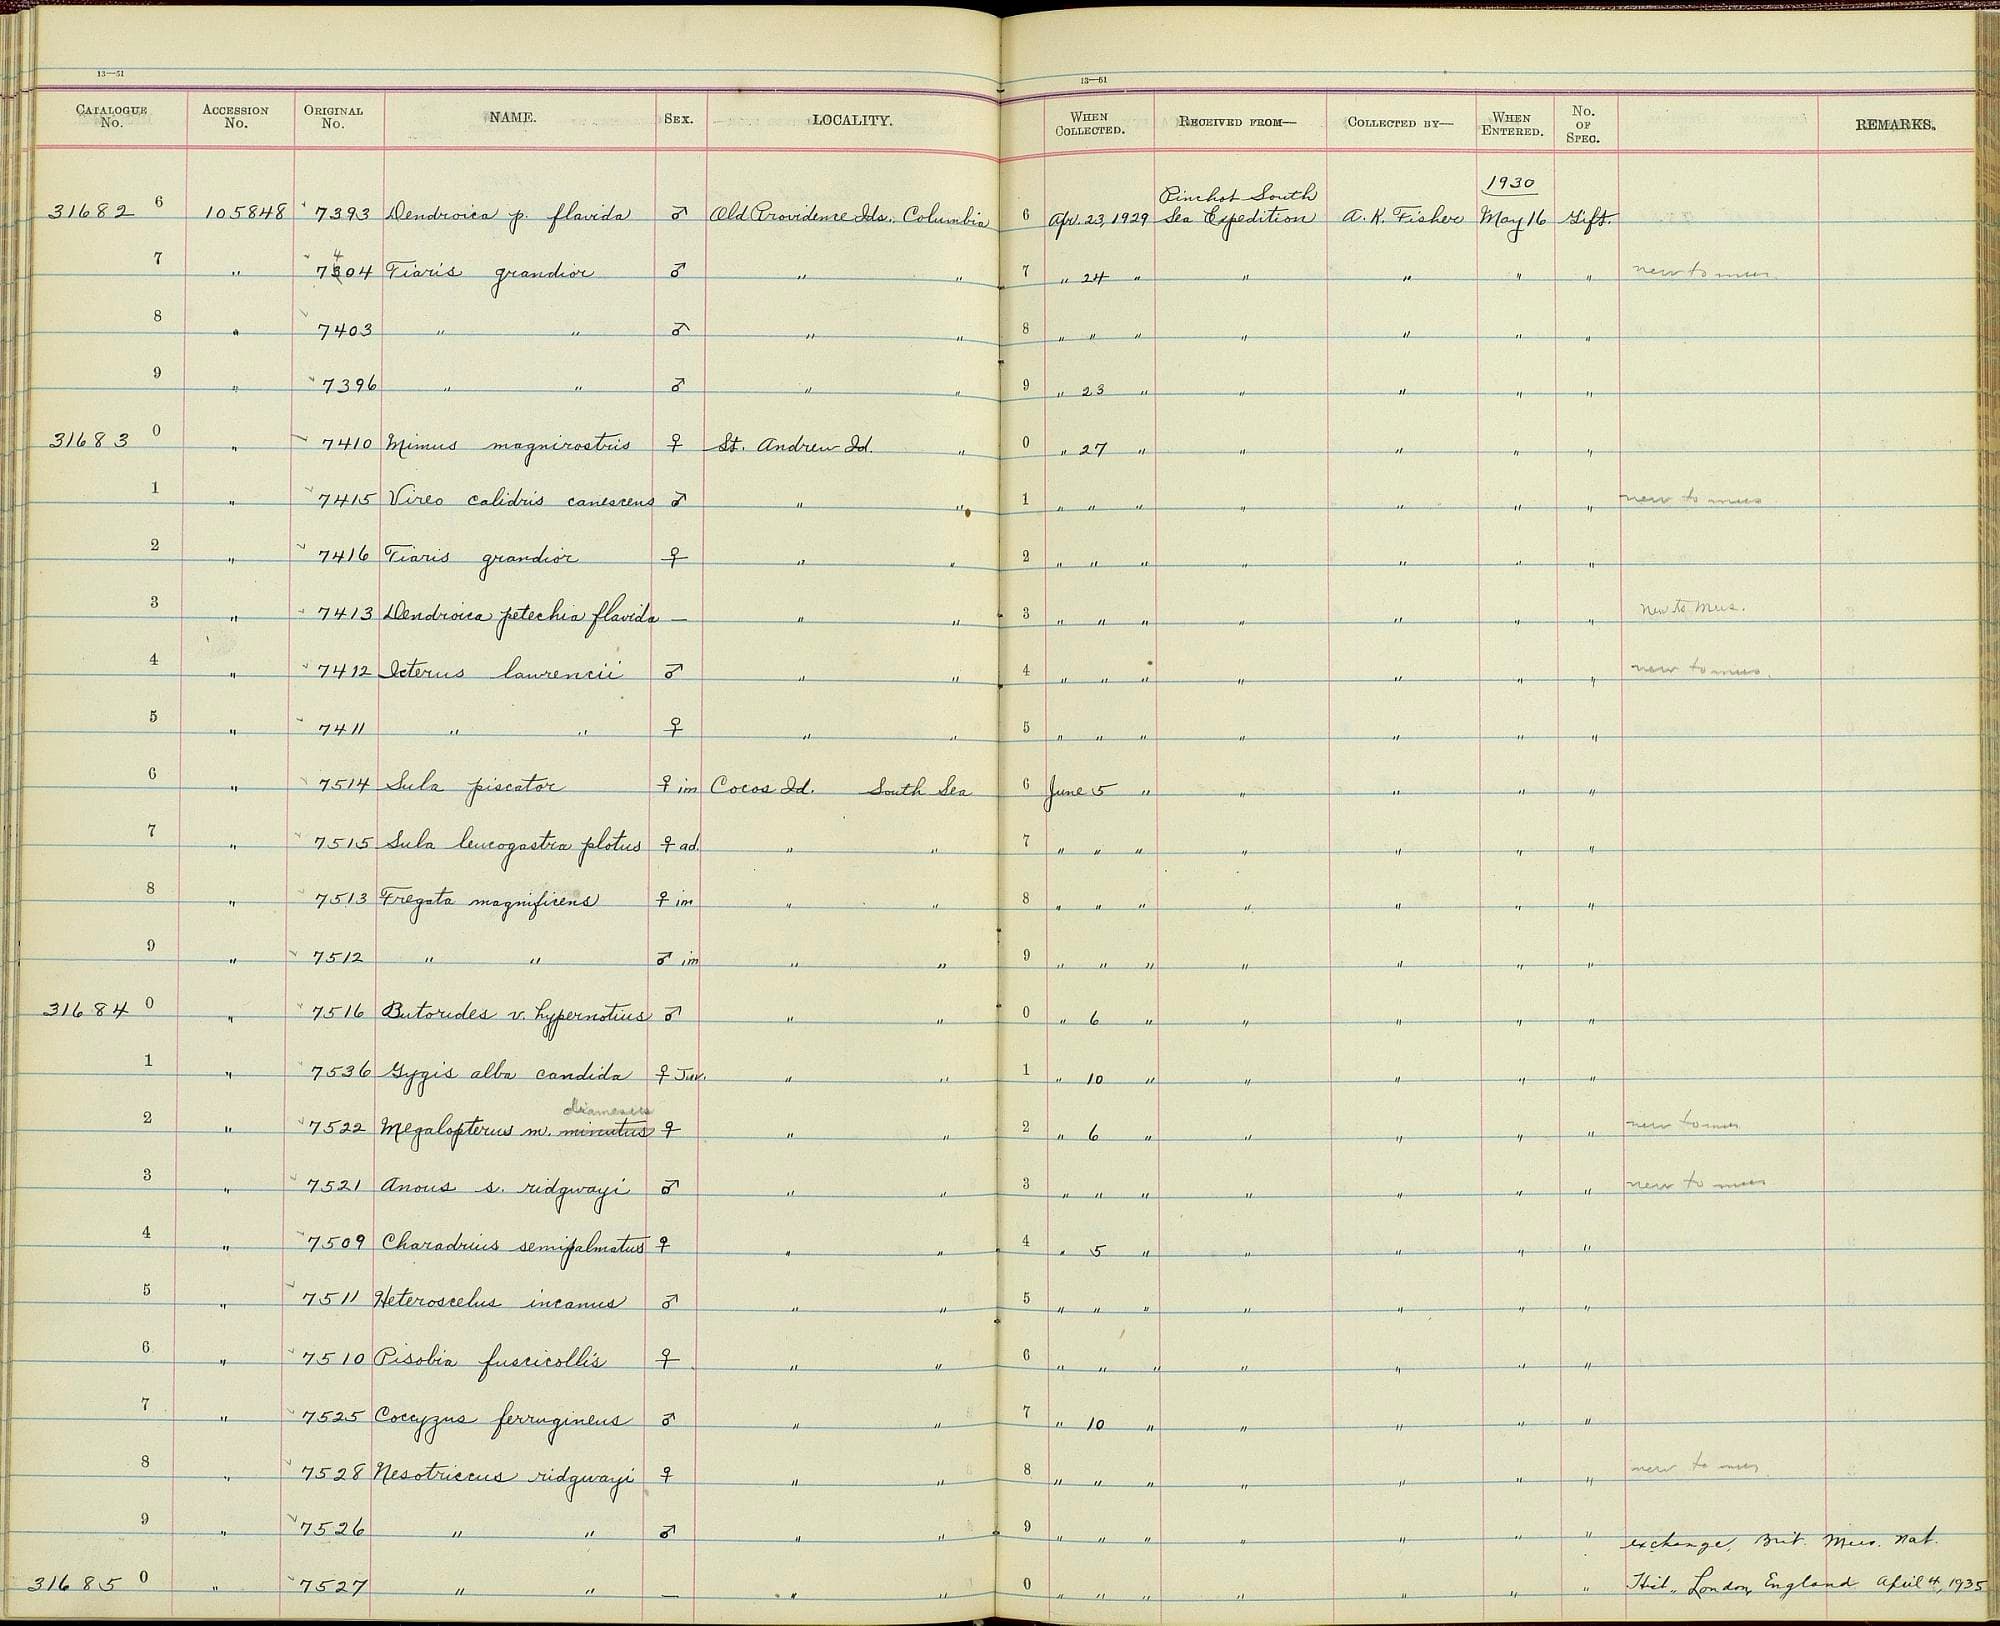 13—51
13—51
CATALOGUE No. ACCESSION No. ORIGINAL No. NAME. SEX. LOCALITY. WHEN COLLECTED. RECEIVED FROM— COLLECTED BY— WHEN ENTERED. No. OF SPEC. REMARKS.
1930
Pinchot South
31682 6 105848 7393 Dendroica p. flavida ♂ Old Providence Ids., Columbia 6 Apr. 23, 1929 Sea Expedition A. K. Fisher May 16 Gift.
4
7 " 7304 Tiaris grandior ♂ " " 7 " 24 " " " " " new to mus.
8 " 7403 " " ♂ " " 8 " " " " " " "
9 " 7396 " " ♂ " " 9 " 23 " " " " "
31683 0 " 7410 Mimus magnirostris ♀ St. Andrew Id. " 0 " 27 " " " " "
1 " 7415 Vireo calidris canescens ♂ " " 1 " " " " " " " new to mus
2 " 7416 Tiaris grandior ♀ " " 2 " " " " " " "
3 " 7413 Dendroica petechia flavida — " " 3 " " " " " " " New to Mus.
4 " 7412 Icterus lawrencii ♂ " " 4 " " " " " " " new to mus.
5 " 7411 " " ♀ " " 5 " " " " " " "
6 " 7514 Sula piscator ♀ im Cocos Id. South Sea 6 June 5 " " " " "
7 " 7515 Sula leucogastra plotus ♀ ad. " " 7 " " " " " " "
8 " 7513 Fregata magnificens ♀ im " " 8 " " " " " " "
9 " 7512 " " ♂ im " " 9 " " " " " " "
31684 0 " 7516 Butorides v. hypernotius ♂ " " 0 " 6 " " " " "
1 " 7536 Gygis alba candida ♀ Juv. " " 1 " 10 " " " " "
diamesus
2 " 7522 Megalopterus m. minutus ♀ " " 2 " 6 " " " " " new to mus
3 " 7521 Anous s. ridgwayi ♂ " " 3 " " " " " " " new to mus
4 " 7509 Charadrius semipalmatus ♀ " " 4 " 5 " " " " "
5 " 7511 Heteroscelus incanus ♂ " " 5 " " " " " " "
6 " 7510 Pisobia fuscicollis ♀ " " 6 " " " " " " "
7 " 7525 Coccyzus ferrugineus ♂ " " 7 " 10 " " " " "
8 " 7528 Nesotriccus ridgwayi ♀ " " 8 " " " " " " " new to mus.
9 " 7526 " " ♂ " " 9 " " " " " " "
exchange, Brit. Mus. Nat.
31685 0 " 7527 " " — " " 0 " " " " " " " Hist., London, England April 4, 1935